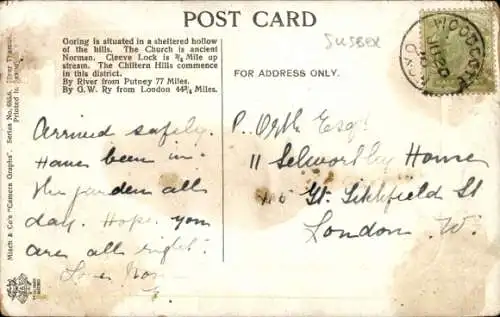 POST CARD
Goring is situated in a sheltered hollow
of the hills. The Church is ancient
Norman. Cleeve Lock is ¾ Mile up
stream. The Chiltern Hills commence
in this district.
By River from Putney 77 Miles.
By G.W. Ry from London 44¾ Miles.
SUSSEX
FOR ADDRESS ONLY.
WOODCOTE
OXON
Misch & Co's "Camera Graphs" Series No.
Printed in
Arrived safely.
Have been in
the garden all
day. Hope you
are all right.
Love
P. Orth Esq
11 Selworthy House
Gt. Titchfield St
London. W.